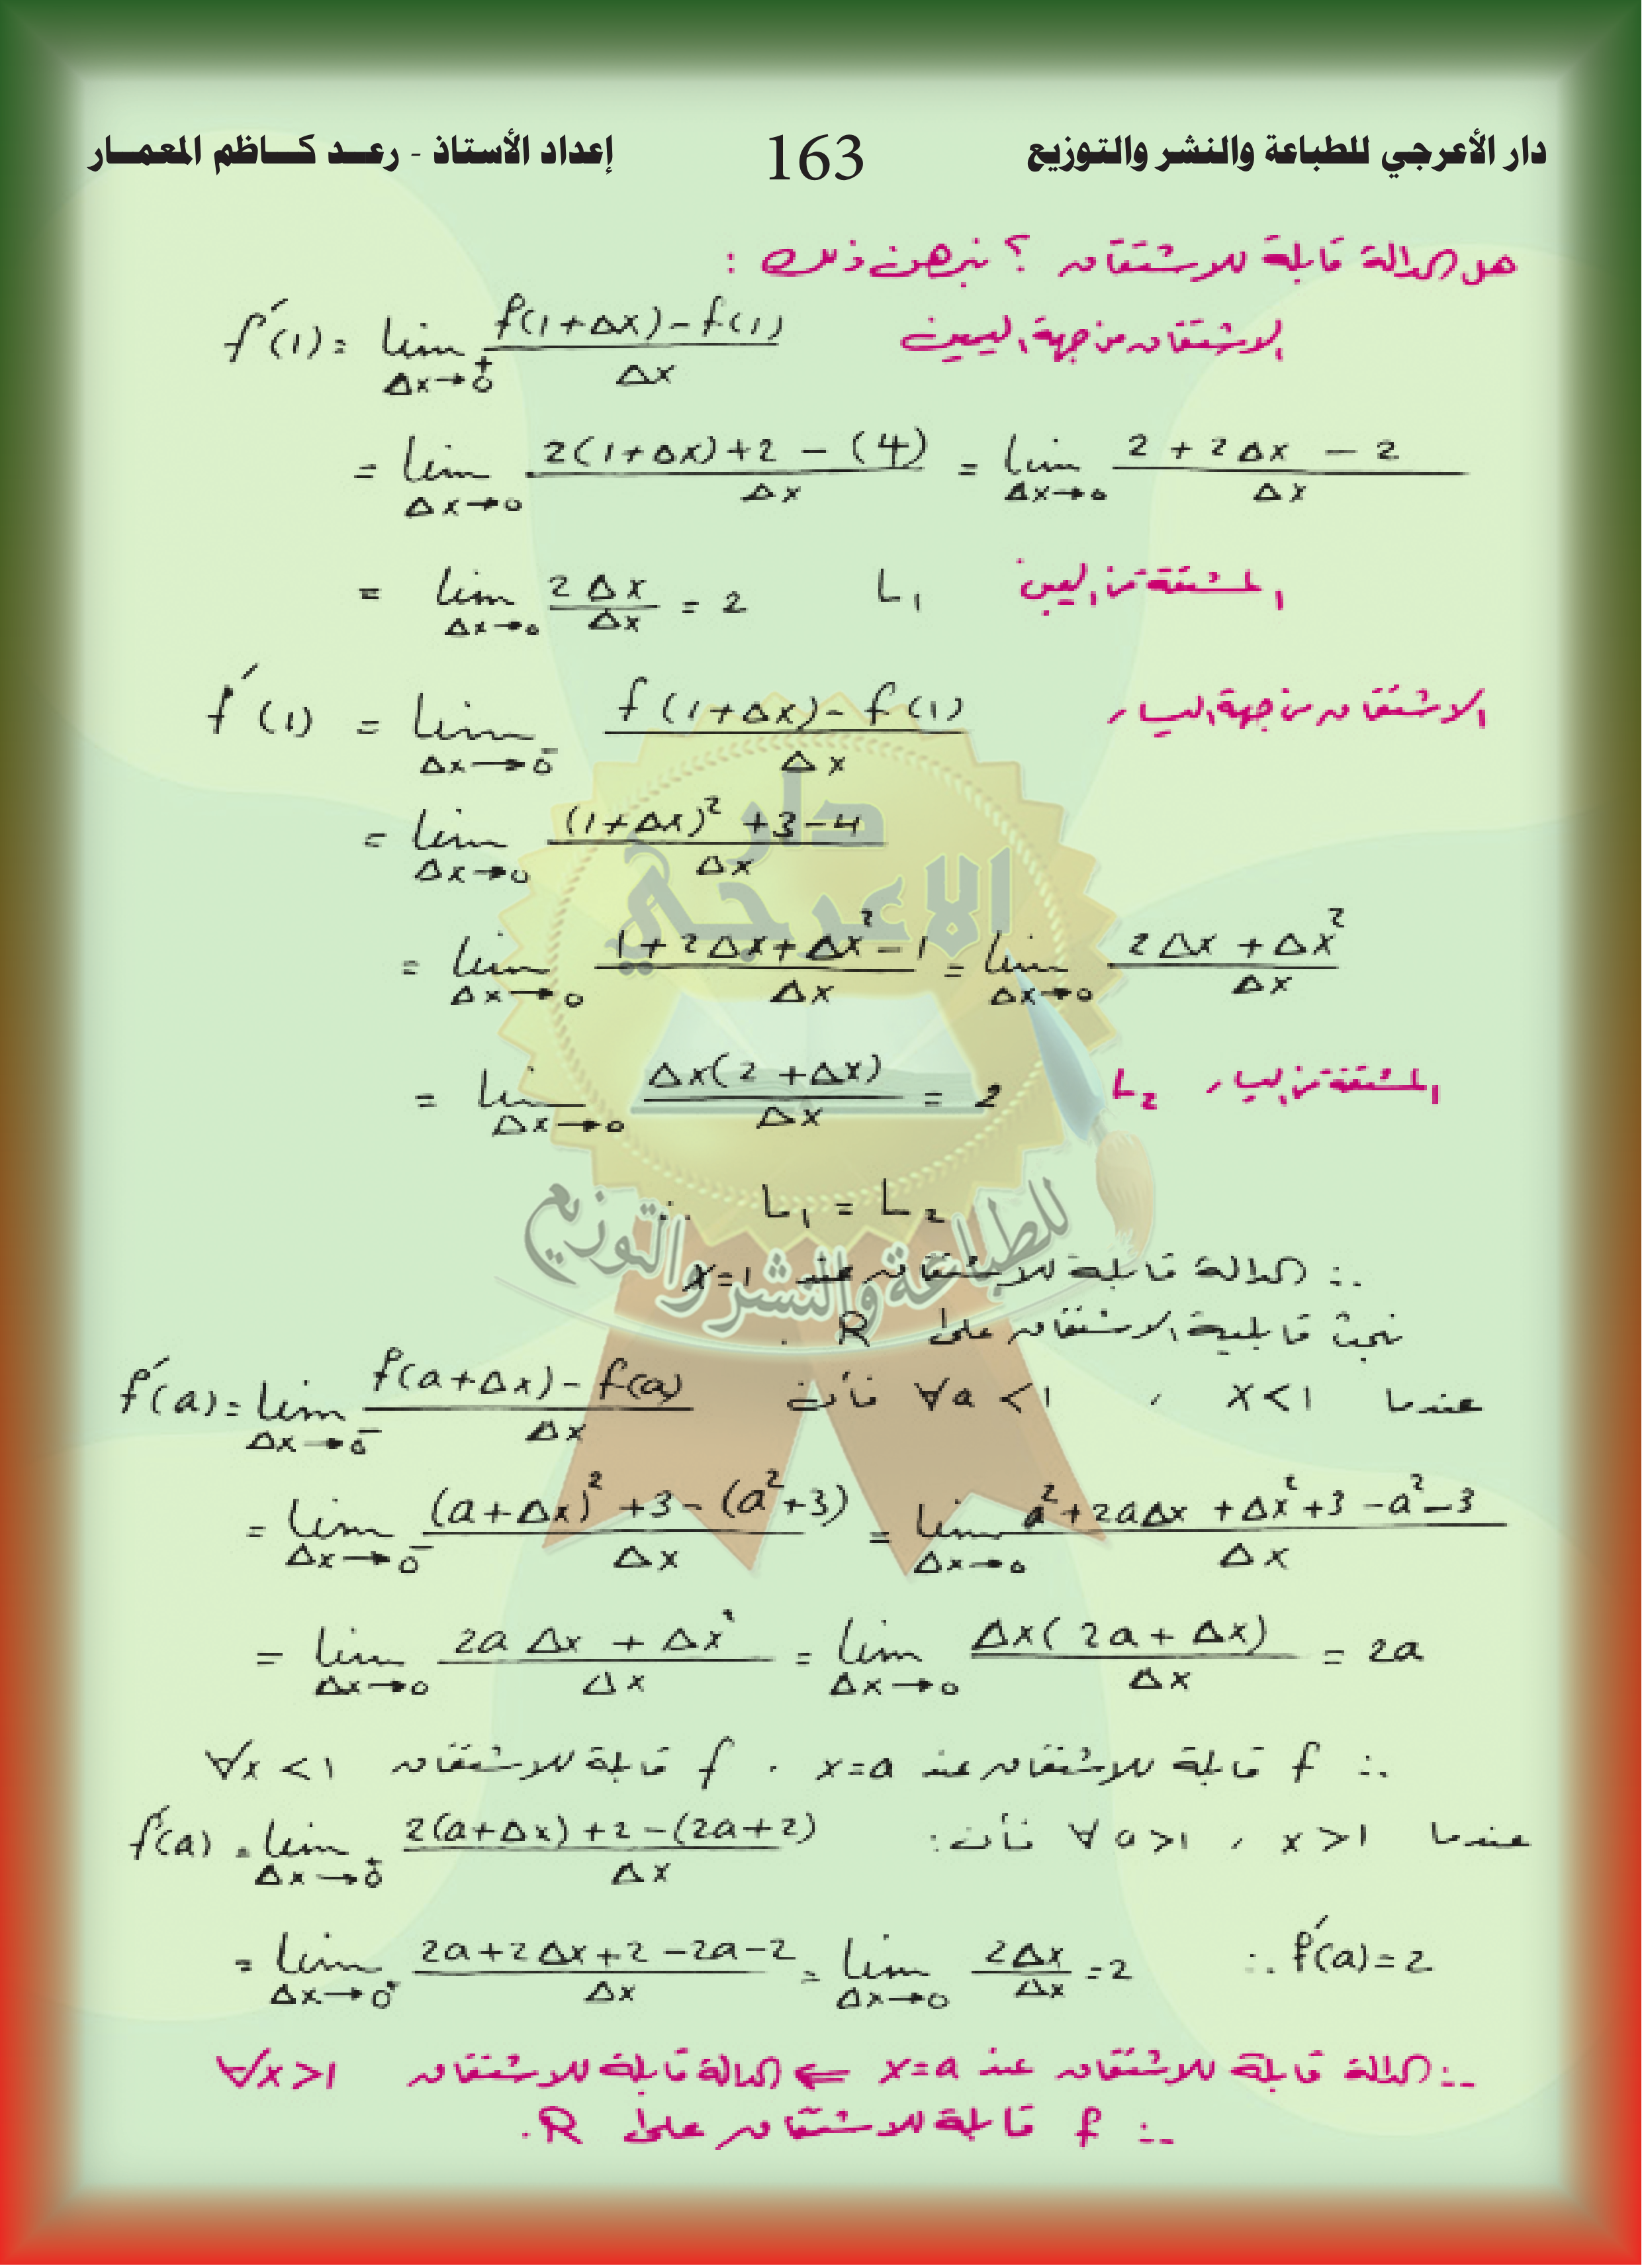 دار الأعرجي للطباعة والنشر والتوزيع 163 إعداد الأستاذ - رعد كاظم المعمار
هل الدالة قابلة للاشتقاق ؟ نبرهن ذلك :
الاشتقاق من جهة اليمين f′(1) = lim Δx→0⁺ (f(1+Δx)-f(1))/Δx
= lim Δx→0 (2(1+Δx)+2-(4))/Δx = lim Δx→0 (2+2Δx-2)/Δx
= lim Δx→0 2Δx/Δx = 2 L₁ المشتقة من اليمين
الاشتقاق من جهة اليسار f′(1) = lim Δx→0⁻ (f(1+Δx)-f(1))/Δx
= lim Δx→0 ((1+Δx)²+3-4)/Δx
= lim Δx→0 (1+2Δx+Δx²-1)/Δx = lim Δx→0 (2Δx+Δx²)/Δx
= lim Δx→0 Δx(2+Δx)/Δx = 2 L₂ المشتقة من اليسار
∴ L₁ = L₂
∴ الدالة قابلة للاشتقاق عند x=1
نبحث قابلية الاشتقاق على R .
عندما x<1 ، ∀a<1 فأن f′(a) = lim Δx→0⁻ (f(a+Δx)-f(a))/Δx
= lim Δx→0⁻ ((a+Δx)²+3-(a²+3))/Δx = lim Δx→0 (a²+2aΔx+Δx²+3-a²-3)/Δx
= lim Δx→0 (2aΔx+Δx²)/Δx = lim Δx→0 Δx(2a+Δx)/Δx = 2a
∴ f قابلة للاشتقاق عند x=a . f قابلة للاشتقاق ∀x<1
عندما x>1 ، ∀a>1 فأن : f′(a) = lim Δx→0⁺ (2(a+Δx)+2-(2a+2))/Δx
= lim Δx→0⁺ (2a+2Δx+2-2a-2)/Δx = lim Δx→0 2Δx/Δx = 2 ∴ f′(a)=2
∴ الدالة قابلة للاشتقاق عند x=a ⇐ الدالة قابلة للاشتقاق ∀x>1
∴ f قابلة للاشتقاق على R.
دار
الاعرجي
للطباعة والنشر والتوزيع